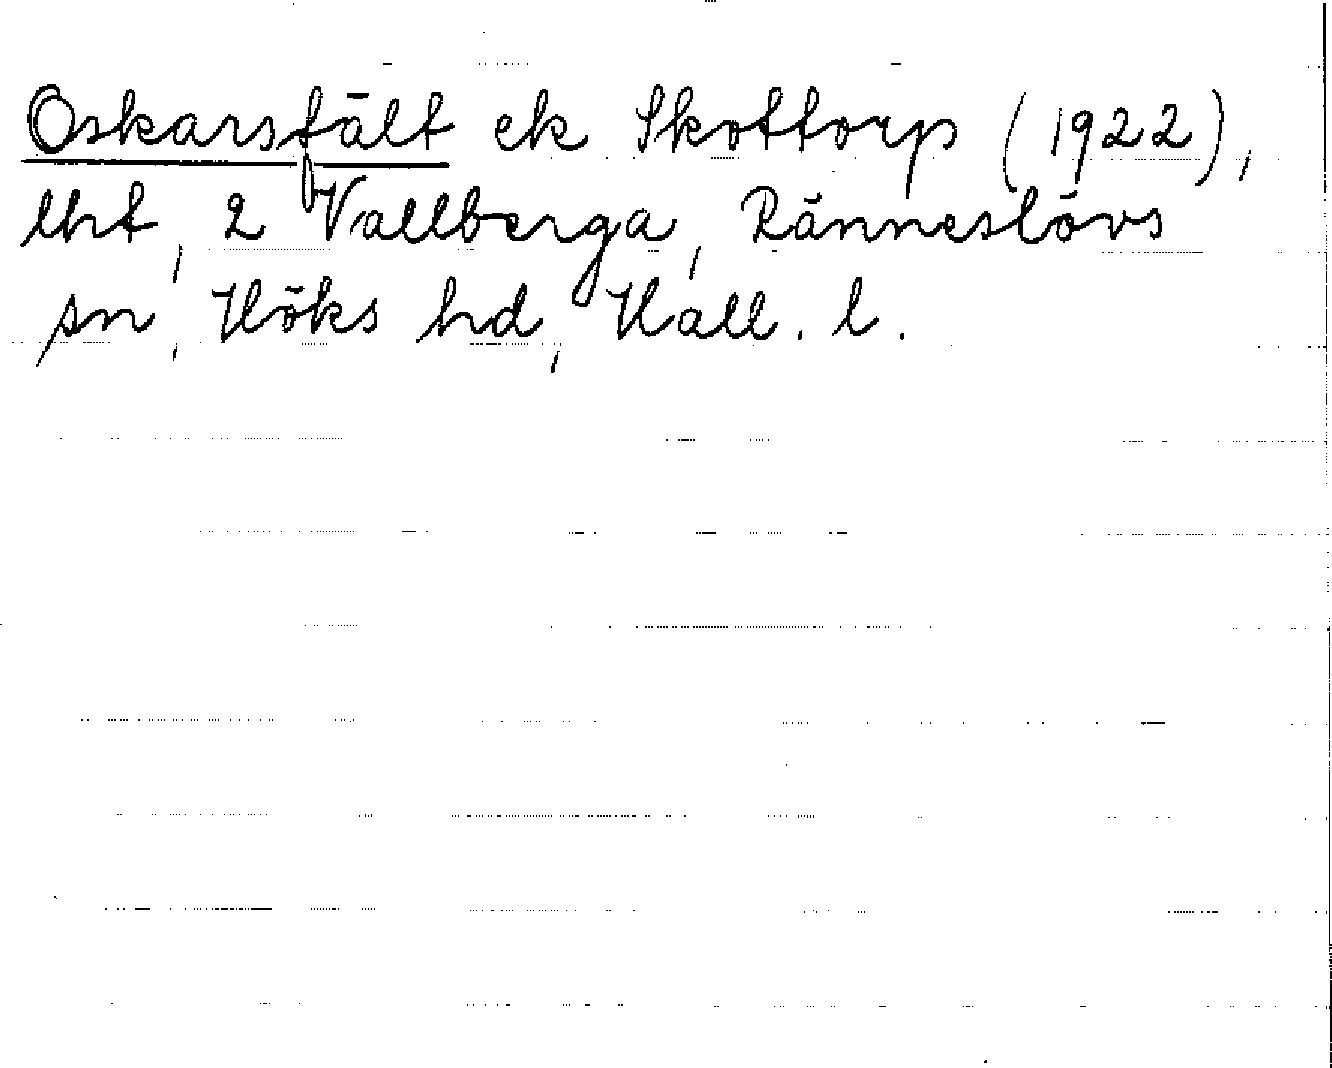 Oskarsfält ek Skottorp (1922),
lht, 2 Vallberga, Ränneslövs
sn, Höks hd, Hall. l.